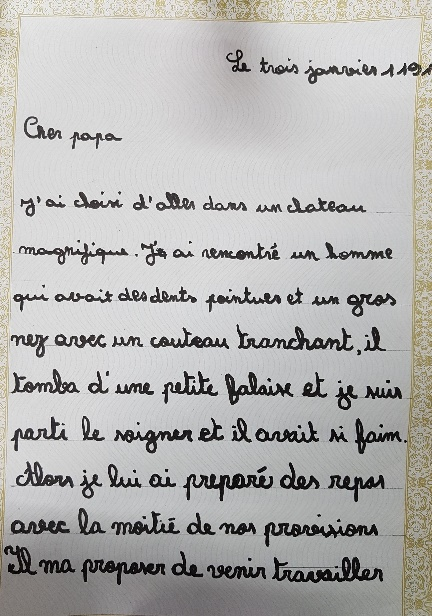 Le trois janvier 1191
Cher papa
J'ai choisi d'aller dans un chateau
magnifique. Je ai rencontré un homme
qui avait des dents pointues et un gros
nez avec un couteau tranchant, il
tomba d'une petite falaise et je suis
parti le soigner et il avait si faim.
Alors je lui ai preparé des repas
avec la moitié de nos provisions
Il ma proposer de venir travailler